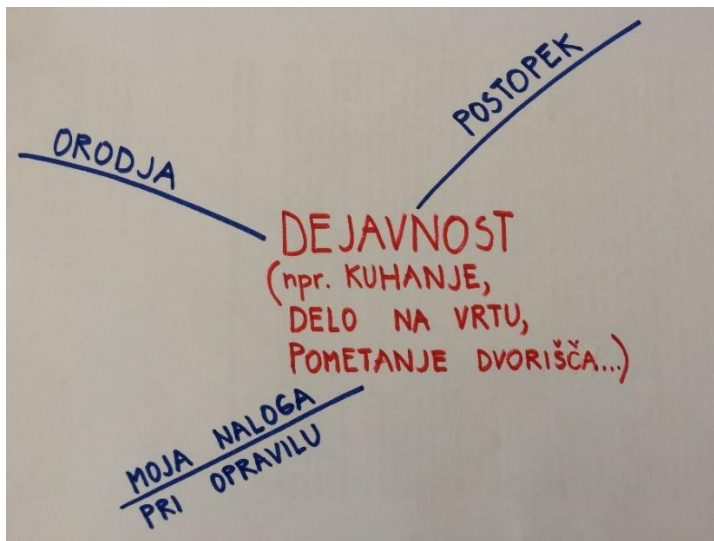 POSTOPEK
ORODJA
DEJAVNOST
(npr. KUHANJE,
DELO NA VRTU,
POMETANJE DVORIŠČA...)
MOJA NALOGA
PRI OPRAVILU